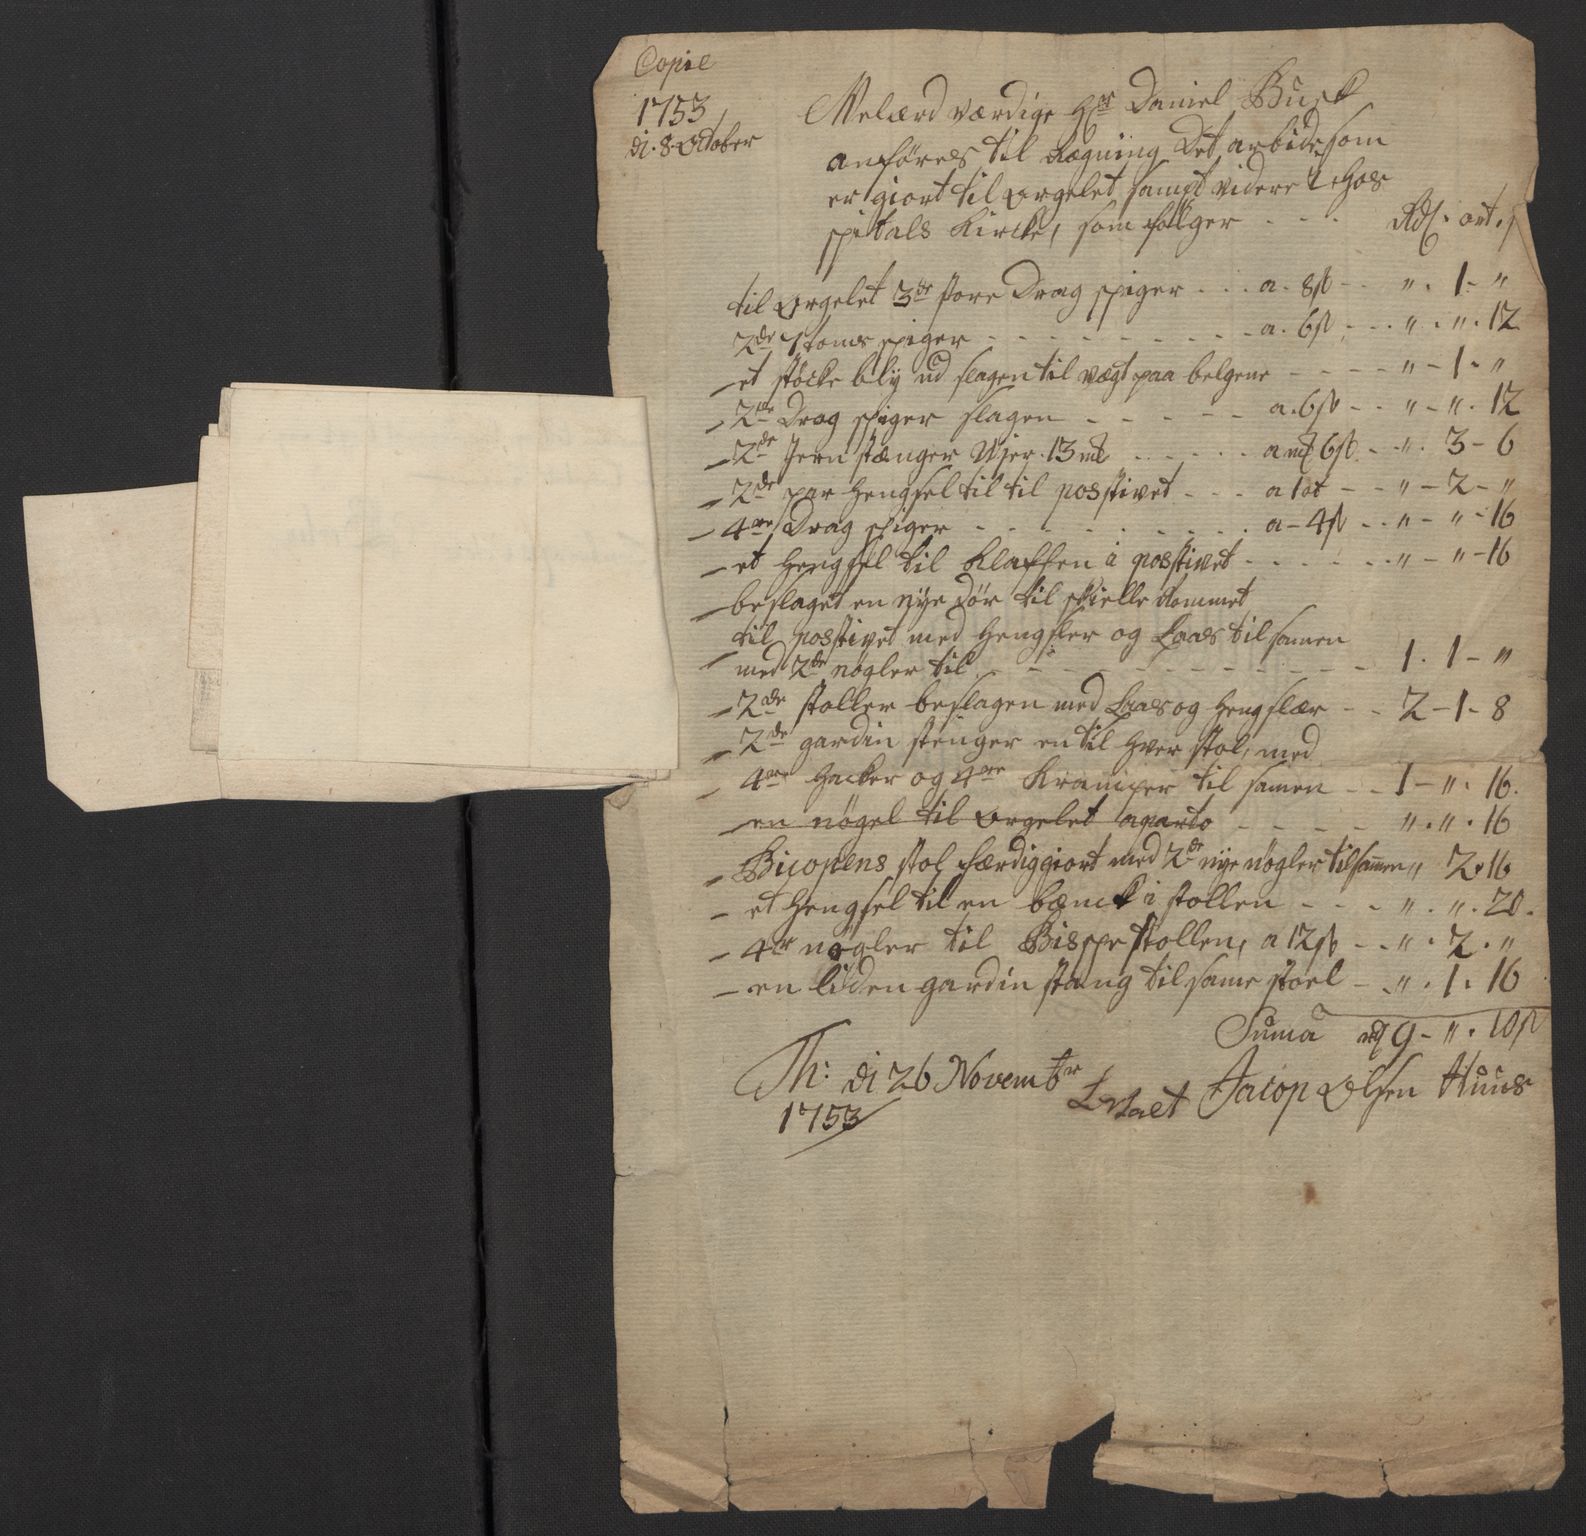 Copie
1753
di. 8. October
Velærdværdige Hr Daniel Buck
anföres til Rægning Det arbide som
er giort til orgelet sampt videre i Hos
spitals Kircke, som fölger - - - Rdl. ort. s
til orgelet 3de store Drag spiger - - - a. 8s - - " . 1 - "
2de spiger - - - a. 6s - - - " . " . 12
- et störcke bly ud slagen til vægt paa belgene - - - - " - 1 - "
- 2de Drag spiger slagen - - - - a. 6s - - " - " . 12
- 2de Jern stænger Vejer. 13 mk - - - - a mk 6s - " . 3 - 6
- 2de par Hengsel til til posstivet - - - a 1 ot - - " - 2 - "
- 4re Drag spiger - - - - a - 4s - - " - " - 16
- et Hengsel til Klaffen i posstivet - - - - - " - " - 16
- beslaget en nye Dör til skielle Rommet
til posstivet med Hengsler og Laas til samen
med 2de nögler til - - - - 1 . 1 - "
- 2de stoller beslagen med Laas og Hengslær - - 2 - 1 - 8
- 2de gardin stenger en til Hver stol, med
- 4re Hacker og 4re Kramper til samen - - 1 - " . 16.
- en nögel til orgelet aparto - - - - - " . " . 16
- Bispens stol færdiggiort med 2de nye nögler tilsamen " 2 . 16
- et Hengsel til en bænck i stollen - - - " . " . 20.
- 4r nögler til Bispe stollen, a 12s - - " . 2 . "
- en liden gardin stang til same stoel - . " . 1 . 16
Suma rd 9 - " . 10s
Th: di 26 Novembr
1753
Jacop Olsen Huus